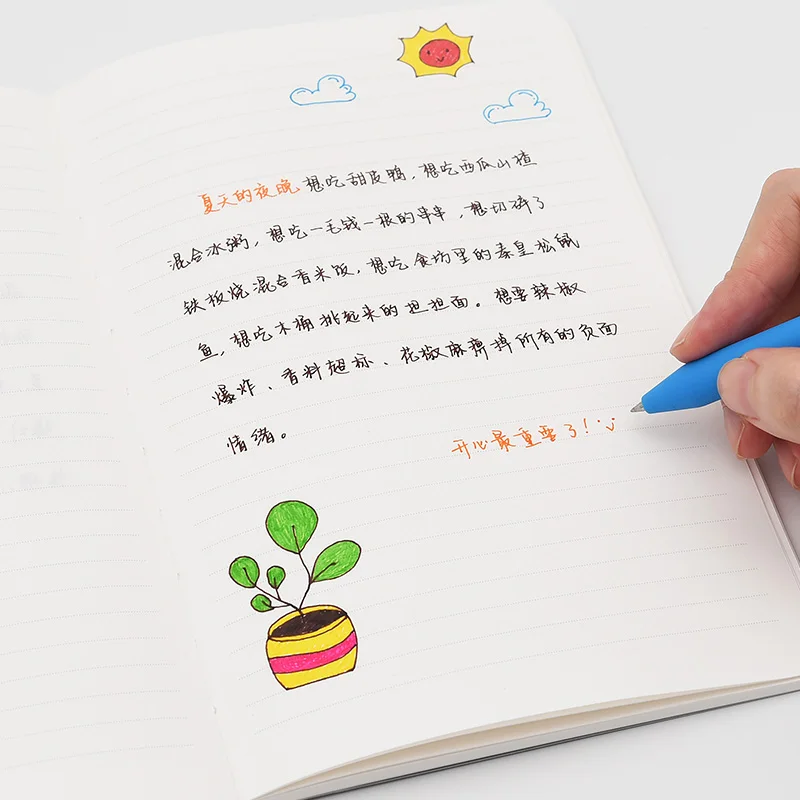 夏天的夜晚 想吃甜皮鸭，想吃西瓜山楂
混合冰粥，想吃一毛钱一根的串串，想切碎了
铁板烧混合香米饭，想吃食坊里的秦皇松鼠
鱼，想吃木桶挑起来的担担面。想要辣椒
爆炸、香料超标、花椒麻痹掉所有的负面
情绪。
开心最重要了！